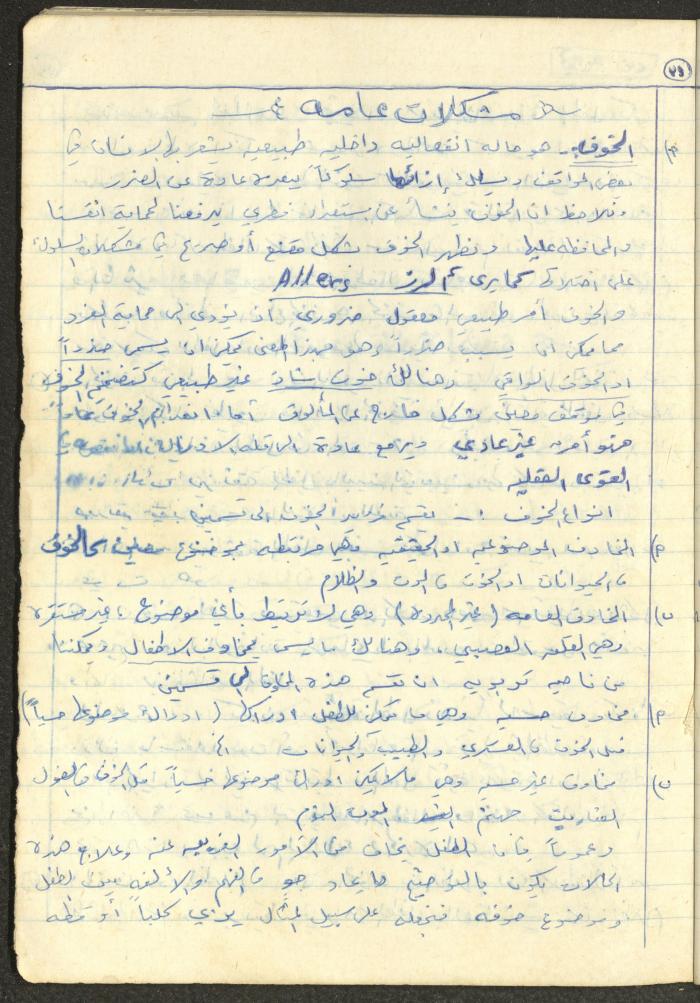 ٧١
مشكلات عامه
أ) الخوف :- هو حاله انفعاليه داخليه طبيعيه يشعر بها الانسان في
بعض المواقف ويسلك إزائها سلوكاً يبعده عادة عن الضرر
ونلاحظ ان الخوف ينشأ عن استعداد فطري يدفعنا لحماية انفسنا
والمحافظه عليها ويظهر الخوف بشكل مقنع أو صريح في مشكلات السلوك
على اختلافها كما يرى ألرز Allers
والخوف أمر طبيعي معقول ضروري ان يؤدي الى حماية الفرد
مما يمكن ان يسبب ضرراً وهو بهذا المعنى يمكن ان يسمى حذراً
او الخوف الواقي وهنالك خوف شاذ غير طبيعي كتضخم الخوف
في موقف معين بشكل خارج عن المألوف أما انعدام الخوف تماماً
فهو أمر غير عادي ويرجع عادة الى قلة الادراك
القوى العقليه
انواع الخوف :- تقسم الخوف الى قسمين
أ) المخاوف الموضوعيه او الحقيقيه وهي مرتبطه بموضوع معين كالخوف
من الحيوانات او الخوف من الموت والظلام
ب) المخاوف العامه (غير المحدودة) وهي لا ترتبط بأي موضوع، غير مستقرة
وهي القلق العصبي، وهنالك ما يسمى بمخاوف الاطفال ويمكننا
من ناحيه تربويه ان نقسم هذه المخاوف الى قسمين
أ) مخاوف حسيه وهي ما يمكن للطفل ادراكها (ادراك موضوعها حسياً)
مثل الخوف من العسكري والطبيب والحيوانات الخ
ب) مخاوف غير حسيه وهي ما لا يمكن ادراك موضوعها حسياً مثل الخوف من الغول
العفاريت جهنم الموت النوم
وعموماً فان الطفل يخاف من الامور الغريبه عنه وعلاج هذه
الحالات يكون بالتوضيح وايجاد جو من الفهم والألفه بين الطفل
وموضوع خوفه فنجعله على سبيل المثال يربي كلباً أو قطه